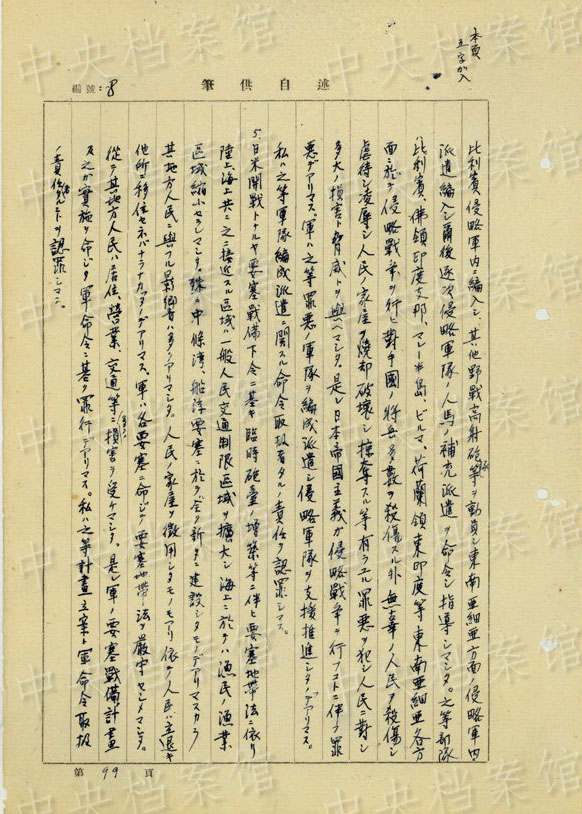 本頁
五字加入
筆供自述
編號：8
比利賓侵略軍内ニ編入シ、其他野戰高射砲隊等ヲ動員シ東南亜細亜方面ノ侵略軍内ニ
派遣編入シ爾後逐次侵略軍隊ノ人馬ノ補充派遣ヲ命令シ指導シマシタ。之等部隊ハ
比利賓、佛領印度支那、マレー半島、ビルマ、荷蘭領東印度等東南亜細亜各方
面ニ於テ侵略戰争ヲ行ヒ對手國ノ將兵多數ヲ殺傷スル外無辜ノ人民ヲ殺傷シ
虐待シ凌辱シ人民ノ家屋ヲ燒却破壞シ掠奪スル等有ラユル罪悪ヲ犯シ人民ニ對シ
多大ノ損害ト脅威トヲ與ヘマシタ。是レ日本帝國主義ガ侵略戰争ヲ行フコトニ伴フ罪
悪デアリマス。軍ハ之等罪悪ノ軍隊ヲ編成派遣シ侵略軍隊ヲ支援推進シタノデアリマス。
私ハ之等軍隊編成派遣ニ関スル命令取扱者タルノ責任ヲ認罪シマス。
5.日米開戰トナルヤ要塞戰備下令ニ基キ臨時砲臺ノ増築等ニ伴ヒ要塞地帶法ニ依リ
陸上海上共ニ之ニ接近スル區域ハ一般人民交通制限區域ヲ擴大シ海上ニ於テハ漁民ノ漁業
區域縮小セラレマシタ。殊ニ中條湾、船浮要塞ニ於テハ全ク新タニ建設シタモノデアリマスカラ
其地方人民ニ與フル影響ハ多クアリマシタ。人民ノ家屋ヲ徴用シタモノモアリ依テ人民ハ立退キ
他所ニ移住セネバナラナカッタノデアリマス。軍ハ各要塞ニ命ジテ要塞地帶法ヲ嚴守セシメマシタ。
從テ其地方人民ハ居住、營業、交通等ニ損害ヲ受ケマシタ。是レ軍ノ要塞戰備計畫
及之ガ實施ヲ命ジタ軍ノ命令ニ基ク罪行デアリマス。私ハ之等計畫立案ト軍命令取扱
ノ責任者タルコトヲ認罪シマス。
第 99 頁
中央档案馆